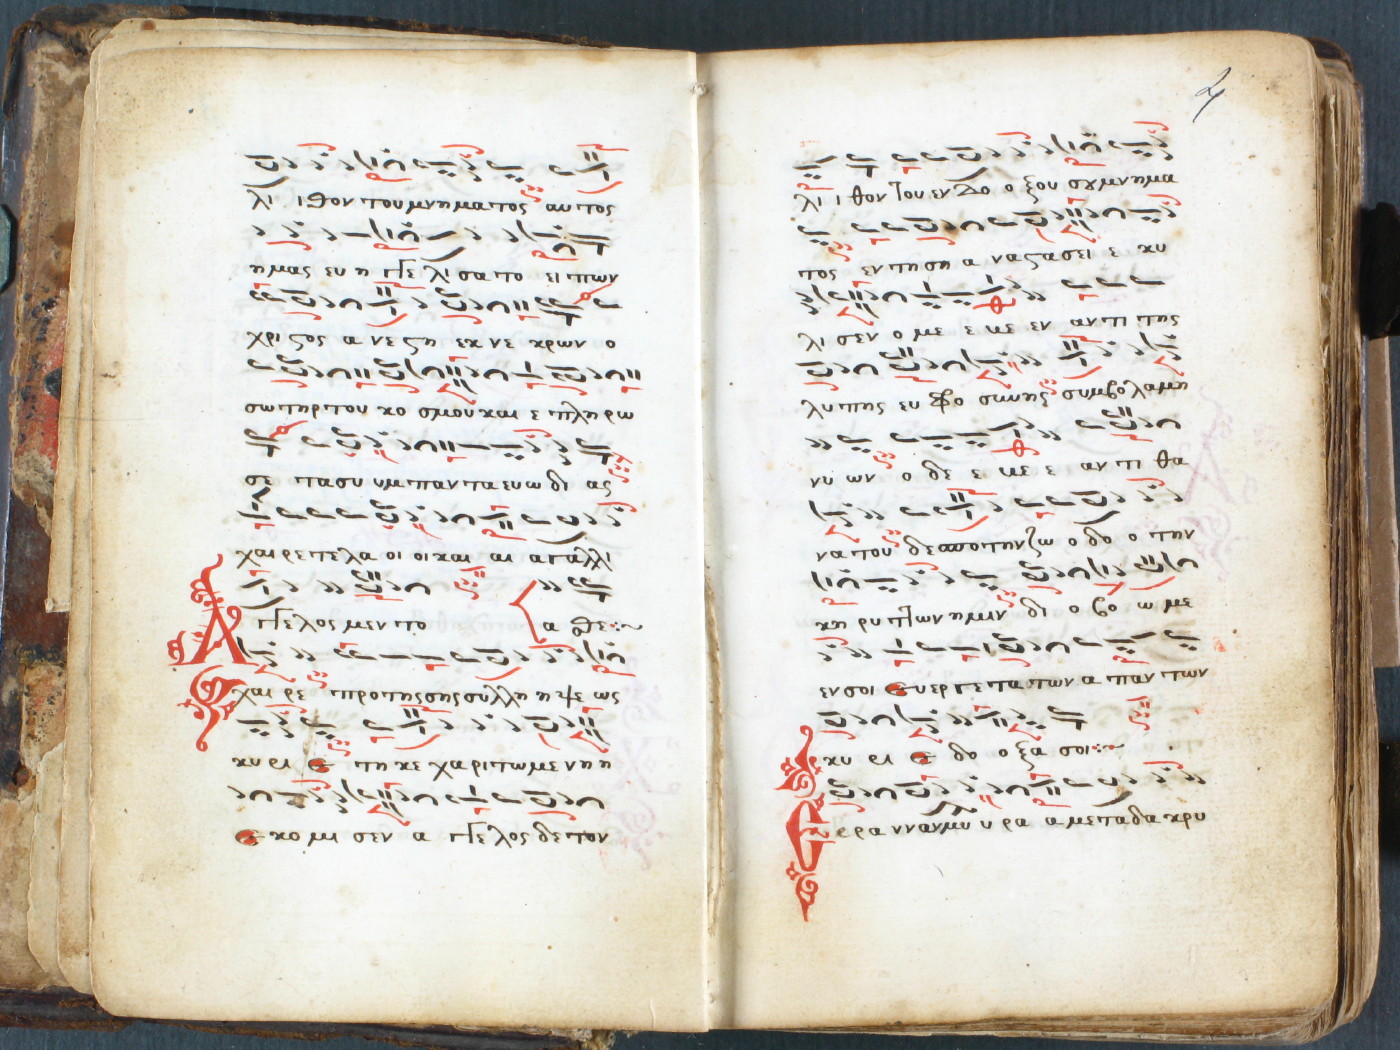 λι ι θον του μνη μα τος αυ τος
η μας ευ η γγε λι σα το ει πων
χρι ϛος α νε ϛη εκ νε κρων ο
σω τηρ του κο σμου και ε πλη ρω
σε τα συ μπαν τα ευ ω δι ας
χαι ρε τε λα οι και α γαλλι
Α γγε λος μεν το α θε
χαι ρε προ της σης συλλη η ψε ως
κυ ρι ε τη κε χα ρι τω με νη η
ε κο μι σεν α γγε λος δε τον
2
λι ι θον του εν δο ο ξου σου μνη μα
τος εν τη ση α να ϛα σει ε κυ
λι σεν ο με ε με εν αν τι της
λυ πης ευ φρο συνης συμβολα μη
νυ ων ο δε ε με ε αν τι θα
να του δεσποτην ζω ο δο ο την
κη ρυ ττων η μιν δι ο βο ω με
εν σοι ευ ερ γε τα των α παν των
κυ ρι ε δο ο ξα σοι
Ε ρρα ναν μυ υ ρα α με τα δα κρυ